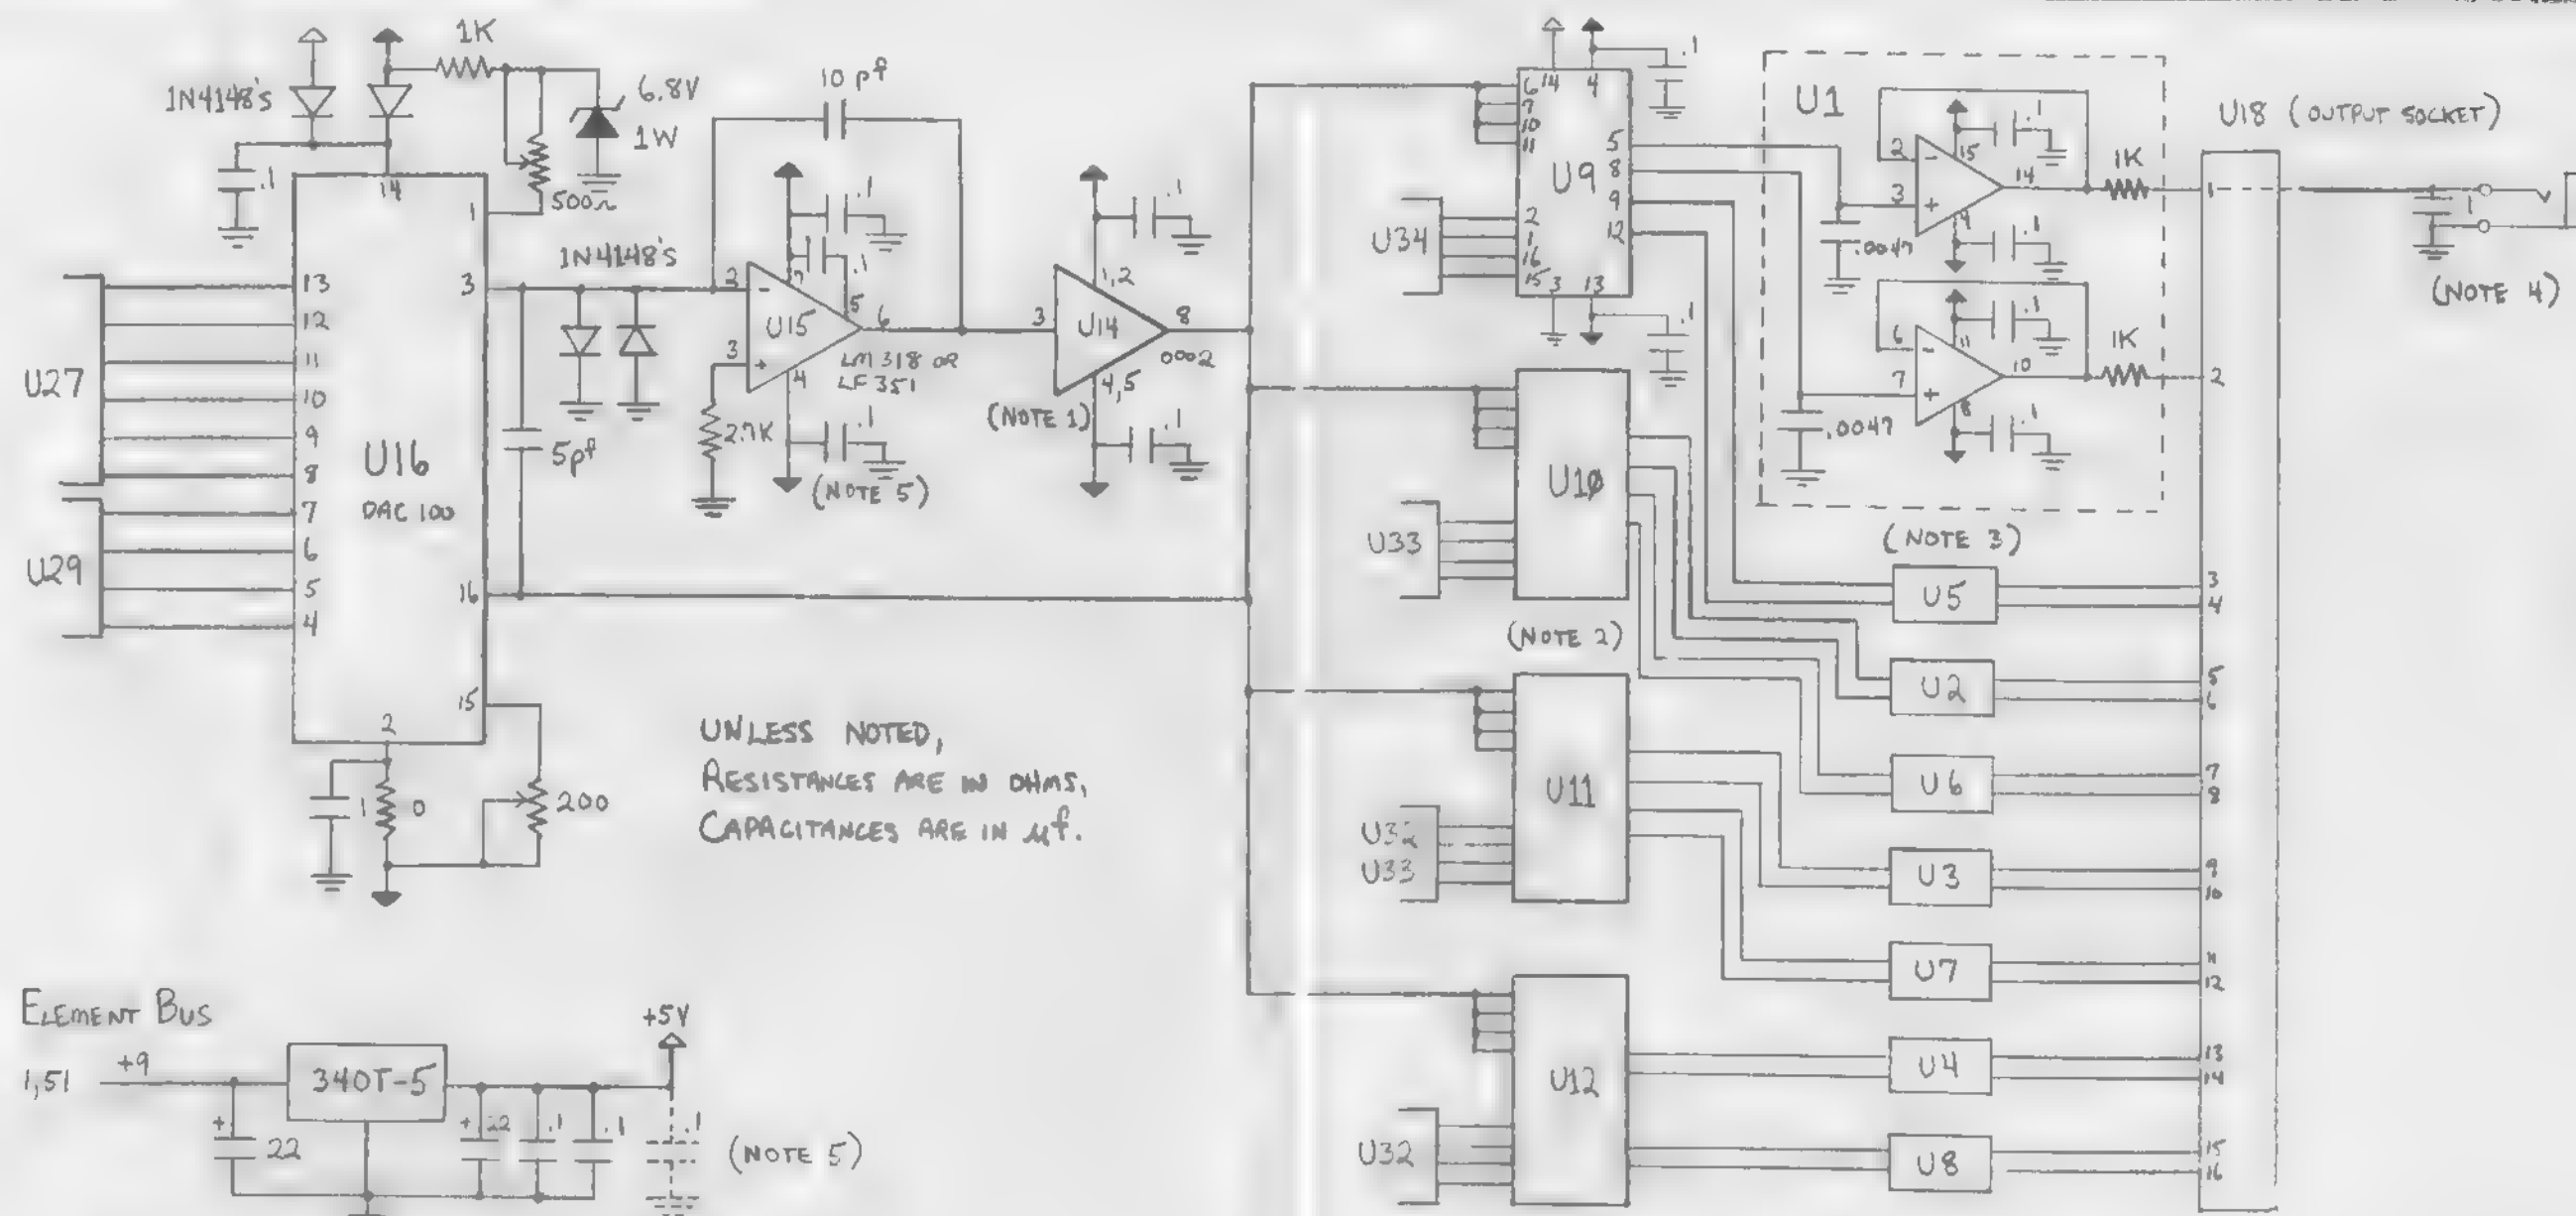 1K
1N4148's
6.8V
1W
.1
500Ω
14
1
3
16
15
2
13
12
11
10
9
8
7
6
5
4
U27
U29
U16
DAC 100
1N4148's
5pf
10 pf
.1
.1
2
3
7
5
6
4
U15
LM 318 OR
LF 351
2.7K
.1
(NOTE 5)
.1
3
1,2
8
4,5
U14
0002
(NOTE 1)
.1
1
0
200
UNLESS NOTED,
RESISTANCES ARE IN OHMS,
CAPACITANCES ARE IN µf.
ELEMENT BUS
1,51
+9
340T-5
+5V
+
22
+ 22
.1
.1
.1
(NOTE 5)
6
7
10
11
14
4
.1
5
8
9
12
U9
2
1
16
15
3
13
.1
U34
U10
U33
(NOTE 2)
U11
U32
U33
U12
U32
U1
2
3
15
14
4
.1
.1
1K
.0047
6
7
11
10
8
.1
.1
1K
.0047
(NOTE 3)
U5
U2
U6
U3
U7
U4
U8
U18 (OUTPUT SOCKET)
1
2
3
4
5
6
7
8
9
10
11
12
13
14
15
16
.1
(NOTE 4)